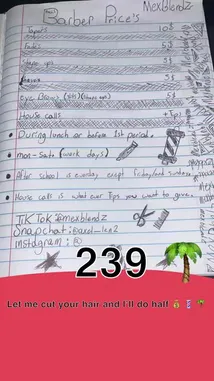 MexBlendz
Barber Price's
Tapers 10$
Fades 5$
Shape ups 5$
5$
Eye Brows (slits)(shape ups) 5$
House calls +Tips
• During lunch or before 1st period.
• mon-Sate (work days)
• After school is everyday except friday and Sunday
• House calls is what ever Tips you want to give.
TikTok:@mexblendz
Snapchat:
instagram:@
239
Let me cut your hair and I'll do half